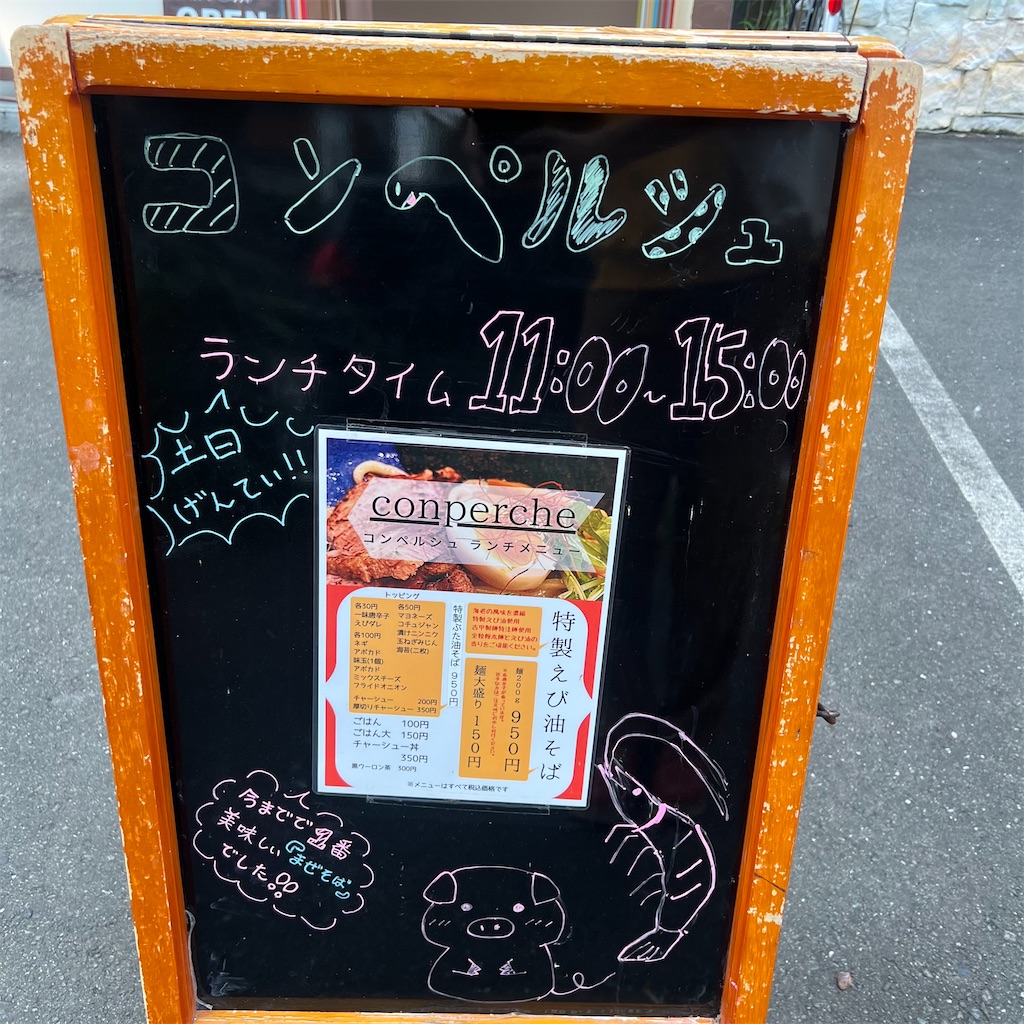 OPEN
コンペルシュ
ランチタイム 11:00~15:00
土日
げんてい!!
conperche
コンペルシュ ランチメニュー
トッピング
各30円
一味唐辛子
えびダレ
各100円
ネギ
アボカド
味玉(1個)
アボカド
ミックスチーズ
フライドオニオン
各50円
マヨネーズ
コチュジャン
漬けニンニク
玉ねぎみじん
海苔(二枚)
チャーシュー 200円
厚切りチャーシュー 350円
ごはん 100円
ごはん大 150円
チャーシュー丼
350円
黒ウーロン茶 300円
特製ぶた油そば 950円
海老の風味を濃縮
特製えび油使用
香りをご堪能ください。
特製えび油そば
麺200g 950円
麺大盛り 150円
※メニューはすべて税込価格です
今までで1番
美味しい『まぜそば』
でした!!